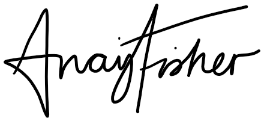 Anay Fisher